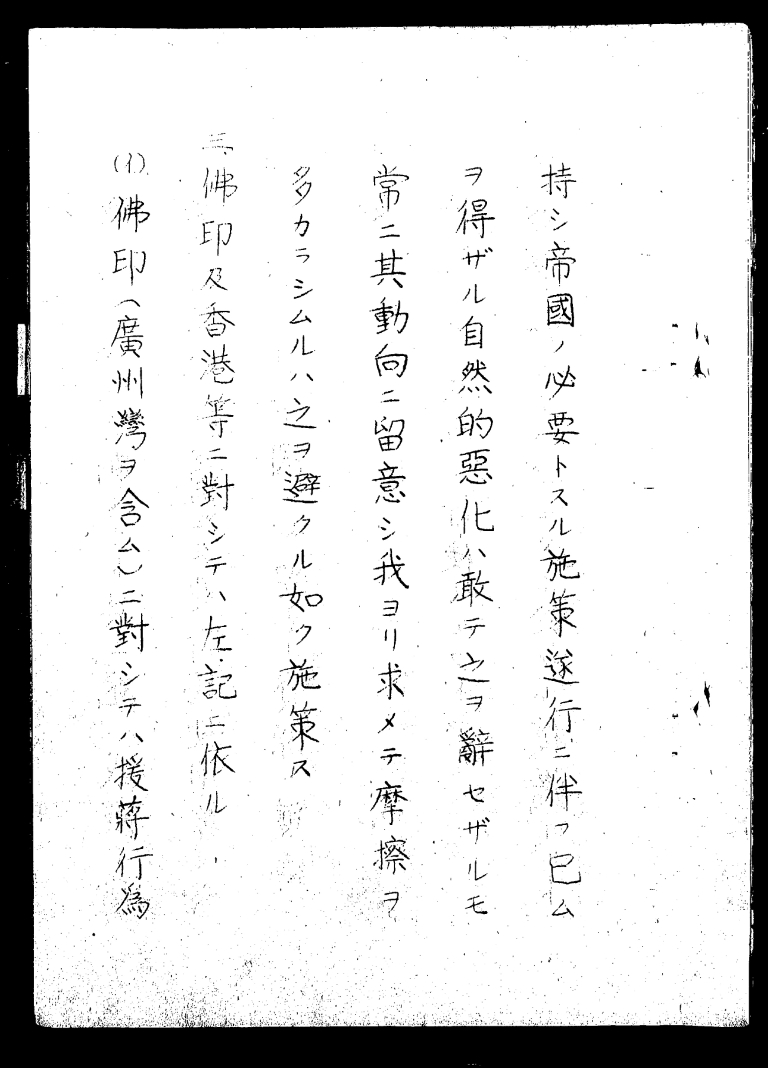 持シ帝國ノ必要トスル施策遂行ニ伴フ已ム
ヲ得ザル自然的惡化ハ敢テ之ヲ辭セザルモ
常ニ其動向ニ留意シ我ヨリ求メテ摩擦ヲ
多カラシムルハ之ヲ避クル如ク施策ス
三、佛印及香港等ニ對シテハ左記ニ依ル
(イ)佛印(廣州灣ヲ含ム)ニ對シテハ援蔣行爲